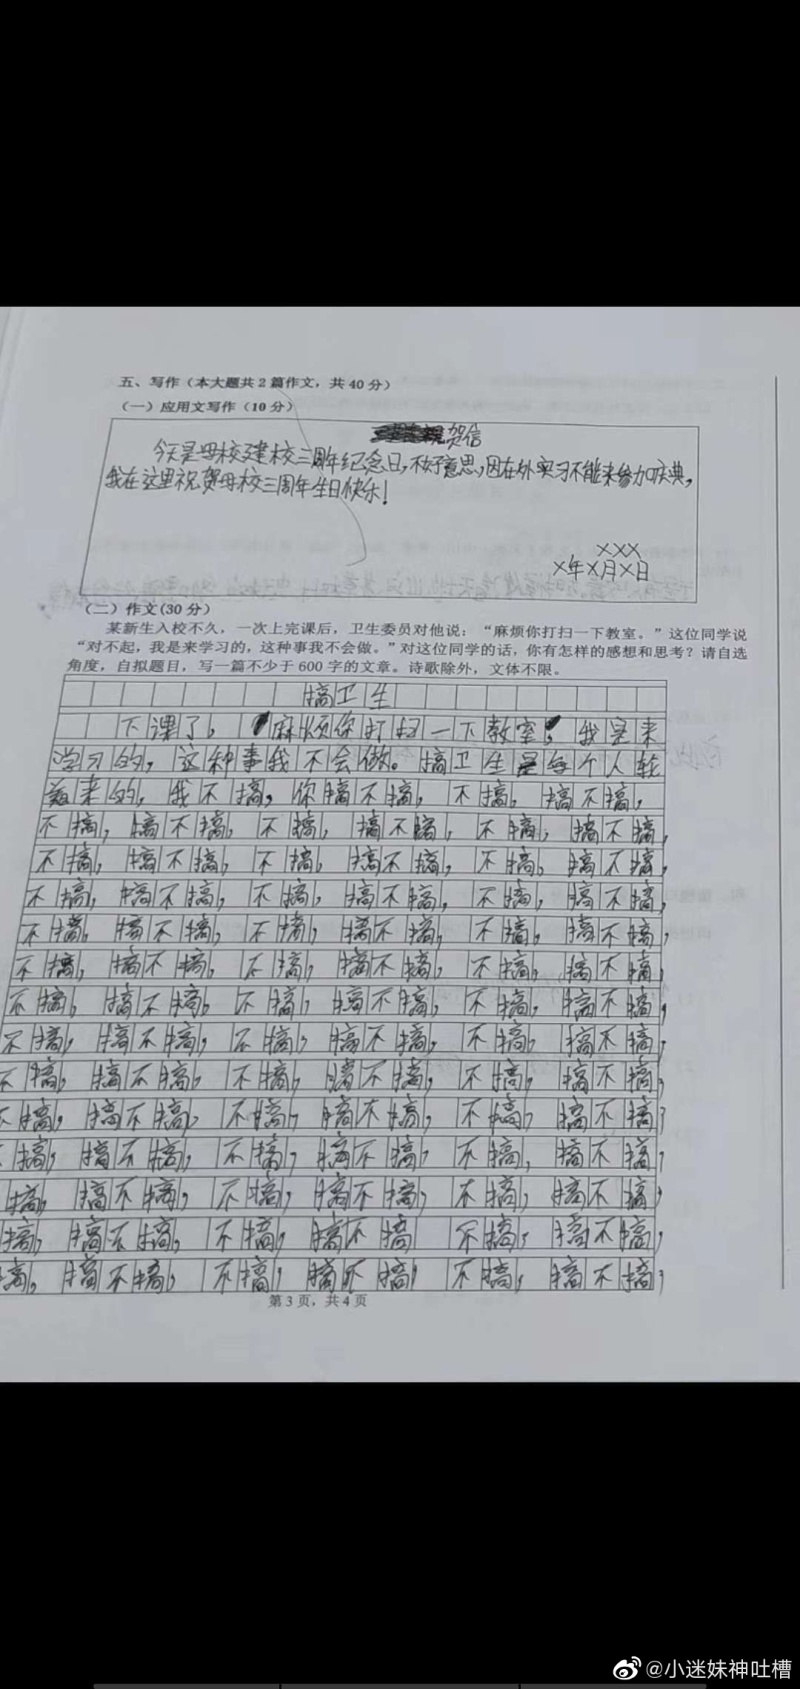 五、写作（本大题共2篇作文，共40分）
（一）应用文写作（10分）
贺信
今天是母校建校三周年纪念日，不好意思，因在外实习不能来参加庆典，
我在这里祝贺母校三周年生日快乐！
XXX
X年X月X日
（二）作文(30分)
某新生入校不久，一次上完课后，卫生委员对他说：“麻烦你打扫一下教室。”这位同学说
“对不起，我是来学习的，这种事我不会做。”对这位同学的话，你有怎样的感想和思考？请自选
角度，自拟题目，写一篇不少于600字的文章。诗歌除外，文体不限。
搞卫生
下课了，麻烦你打扫一下教室，我是来
学习的，这种事我不会做。搞卫生是每个人轮
来的，我不搞，你搞不搞，不搞，搞不搞，
不搞，搞不搞，不搞，搞不搞，不搞，搞不搞，
不搞，搞不搞，不搞，搞不搞，不搞，搞不搞，
不搞，搞不搞，不搞，搞不搞，不搞，搞不搞，
不搞，搞不搞，不搞，搞不搞，不搞，搞不搞，
不搞，搞不搞，不搞，搞不搞，不搞，搞不搞，
不搞，搞不搞，不搞，搞不搞，不搞，搞不搞，
不搞，搞不搞，不搞，搞不搞，不搞，搞不搞，
不搞，搞不搞，不搞，搞不搞，不搞，搞不搞，
不搞，搞不搞，不搞，搞不搞，不搞，搞不搞，
不搞，搞不搞，不搞，搞不搞，不搞，搞不搞，
搞，搞不搞，不搞，搞不搞，不搞，搞不搞，
搞，搞不搞，不搞，搞不搞 不搞，搞不搞，
搞，搞不搞，不搞，搞不搞，不搞，搞不搞，
第3页，共4页
@小迷妹神吐槽